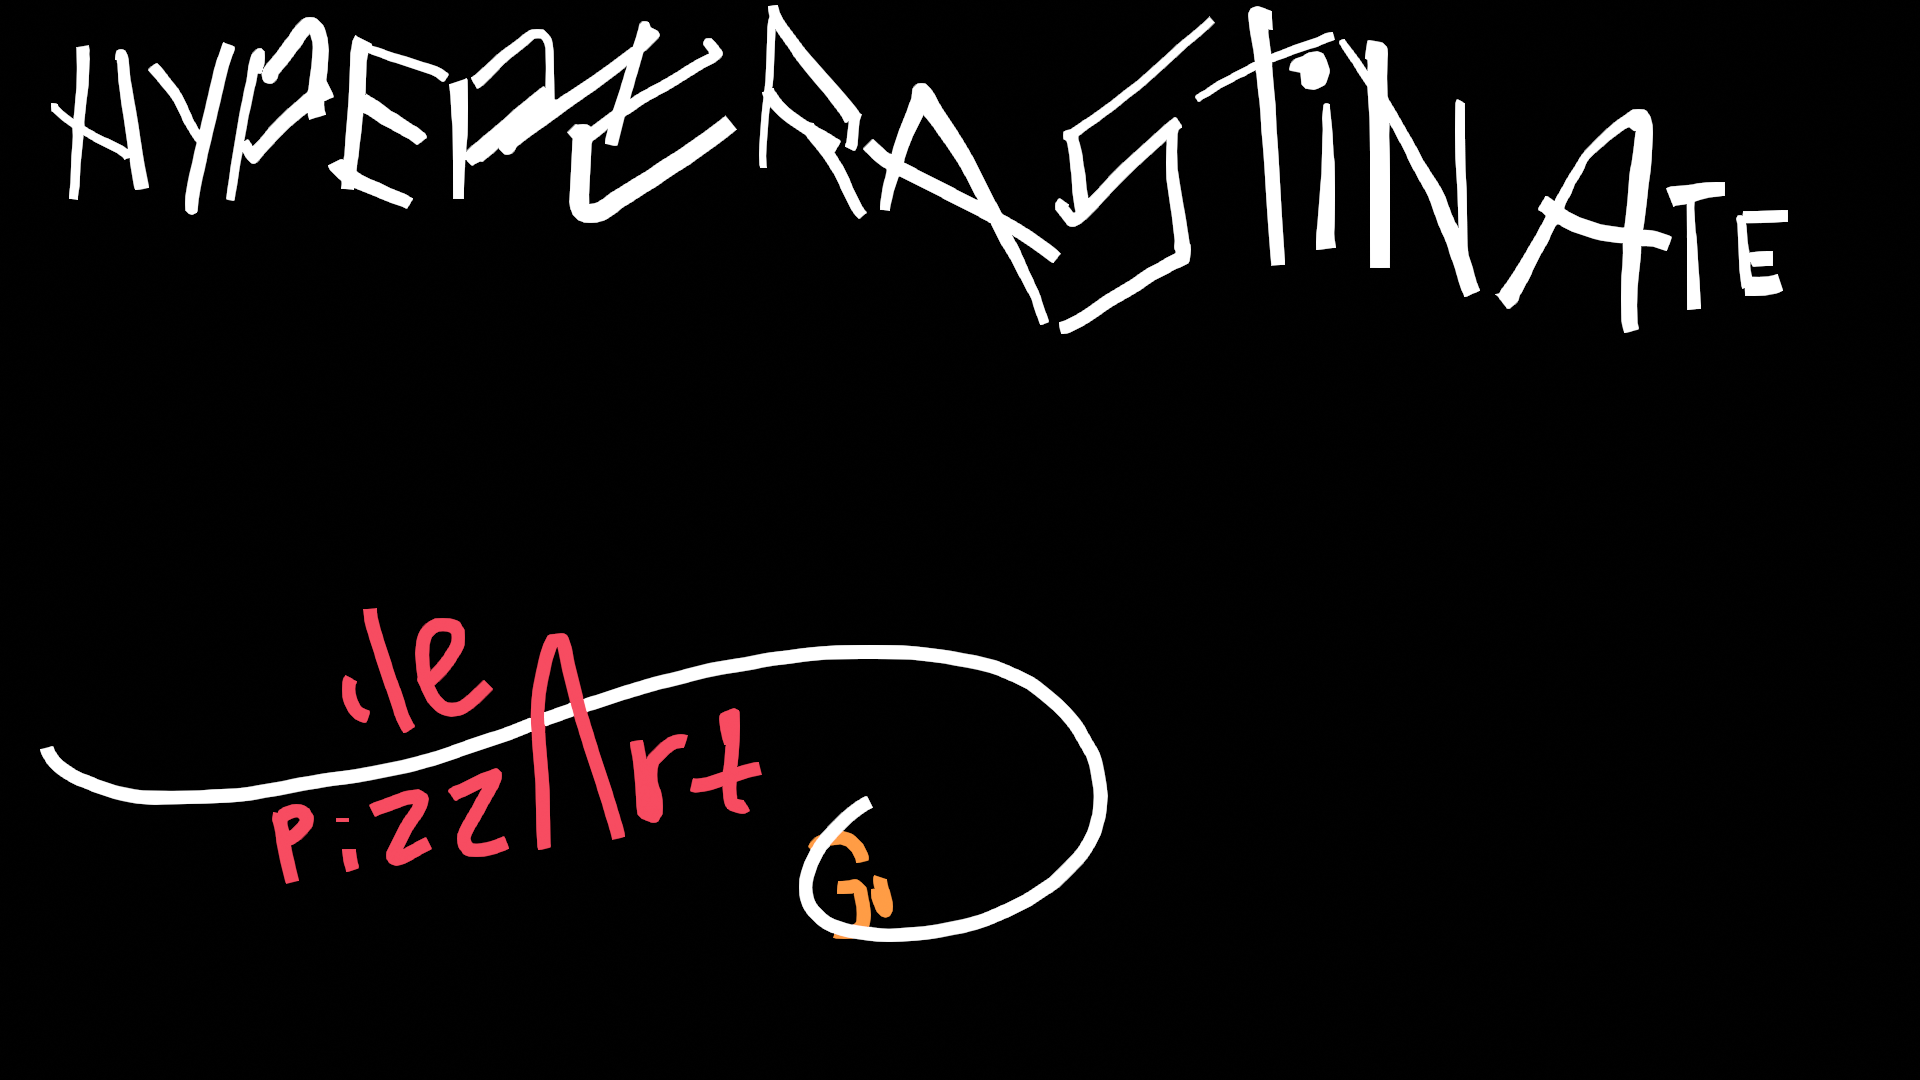 HYPERCRASTINATE
ile
pizzArt